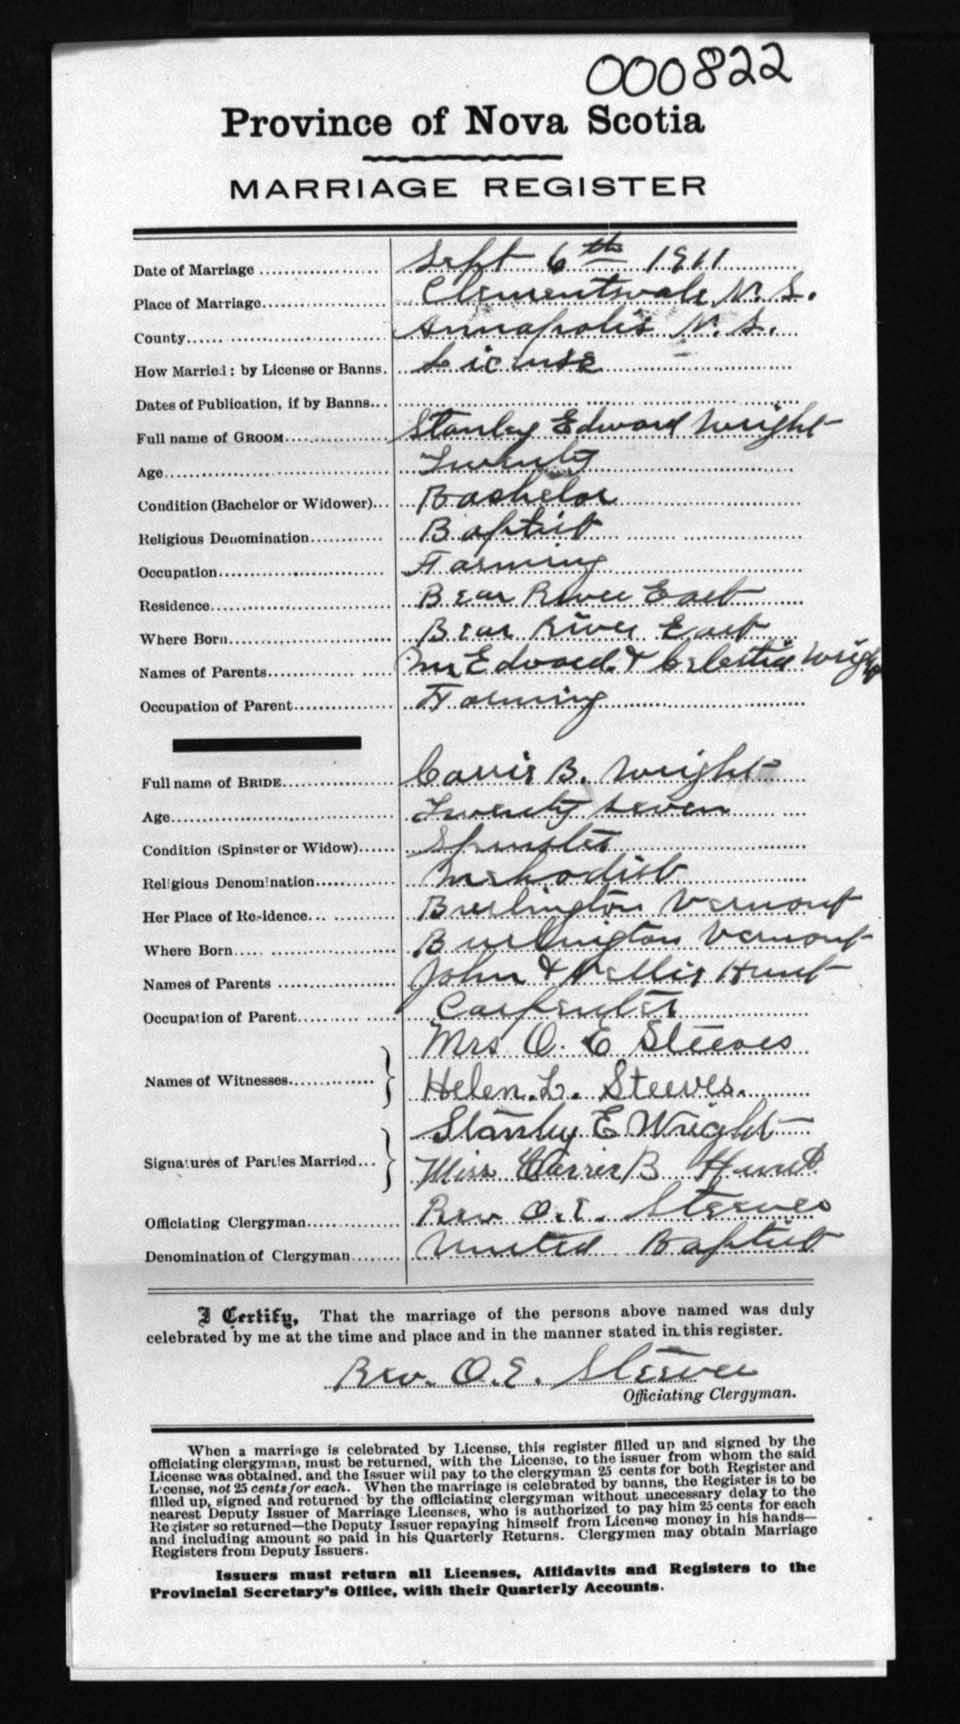 000822
Province of Nova Scotia
MARRIAGE REGISTER
Date of Marriage Sept 6th 1911
Place of Marriage Clementsvale N. S.
County Annapolis N. S.
How Married: by License or Banns. License
Dates of Publication, if by Banns
Full name of GROOM Stanley Edward Wright
Age Twenty
Condition (Bachelor or Widower) Bachelor
Religious Denomination Baptist
Occupation Farming
Residence Bear River East
Where Born Bear River East
Names of Parents Edward & Celestia Wright
Occupation of Parent Farming
Full name of BRIDE Carrie B. Wright
Age Twenty seven
Condition (Spinster or Widow) Spinster
Religious Denomination Methodist
Her Place of Residence Burlington Vermont
Where Born Burlington Vermont
Names of Parents John & Nellie Hunt
Occupation of Parent Carpenter
Mrs O. E Steeves
Names of Witnesses Helen. L. Steeves.
Stanley E Wright
Signatures of Parties Married Miss Carrie B Hunt
Officiating Clergyman Rev O. E. Steeves
Denomination of Clergyman United Baptist
I Certify, That the marriage of the persons above named was duly
celebrated by me at the time and place and in the manner stated in this register.
Rev. O. E. Steeves
Officiating Clergyman.
When a marriage is celebrated by License, this register filled up and signed by the
officiating clergyman, must be returned, with the License, to the issuer from whom the said
License was obtained, and the Issuer will pay to the clergyman 25 cents for both Register and
License, not 25 cents for each. When the marriage is celebrated by banns, the Register is to be
filled up, signed and returned by the officiating clergyman without unnecessary delay to the
nearest Deputy Issuer of Marriage Licenses, who is authorized to pay him 25 cents for each
Register so returned—the Deputy Issuer repaying himself from License money in his hands—
and including amount so paid in his Quarterly Returns. Clergymen may obtain Marriage
Registers from Deputy Issuers.
Issuers must return all Licenses, Affidavits and Registers to the
Provincial Secretary's Office, with their Quarterly Accounts.